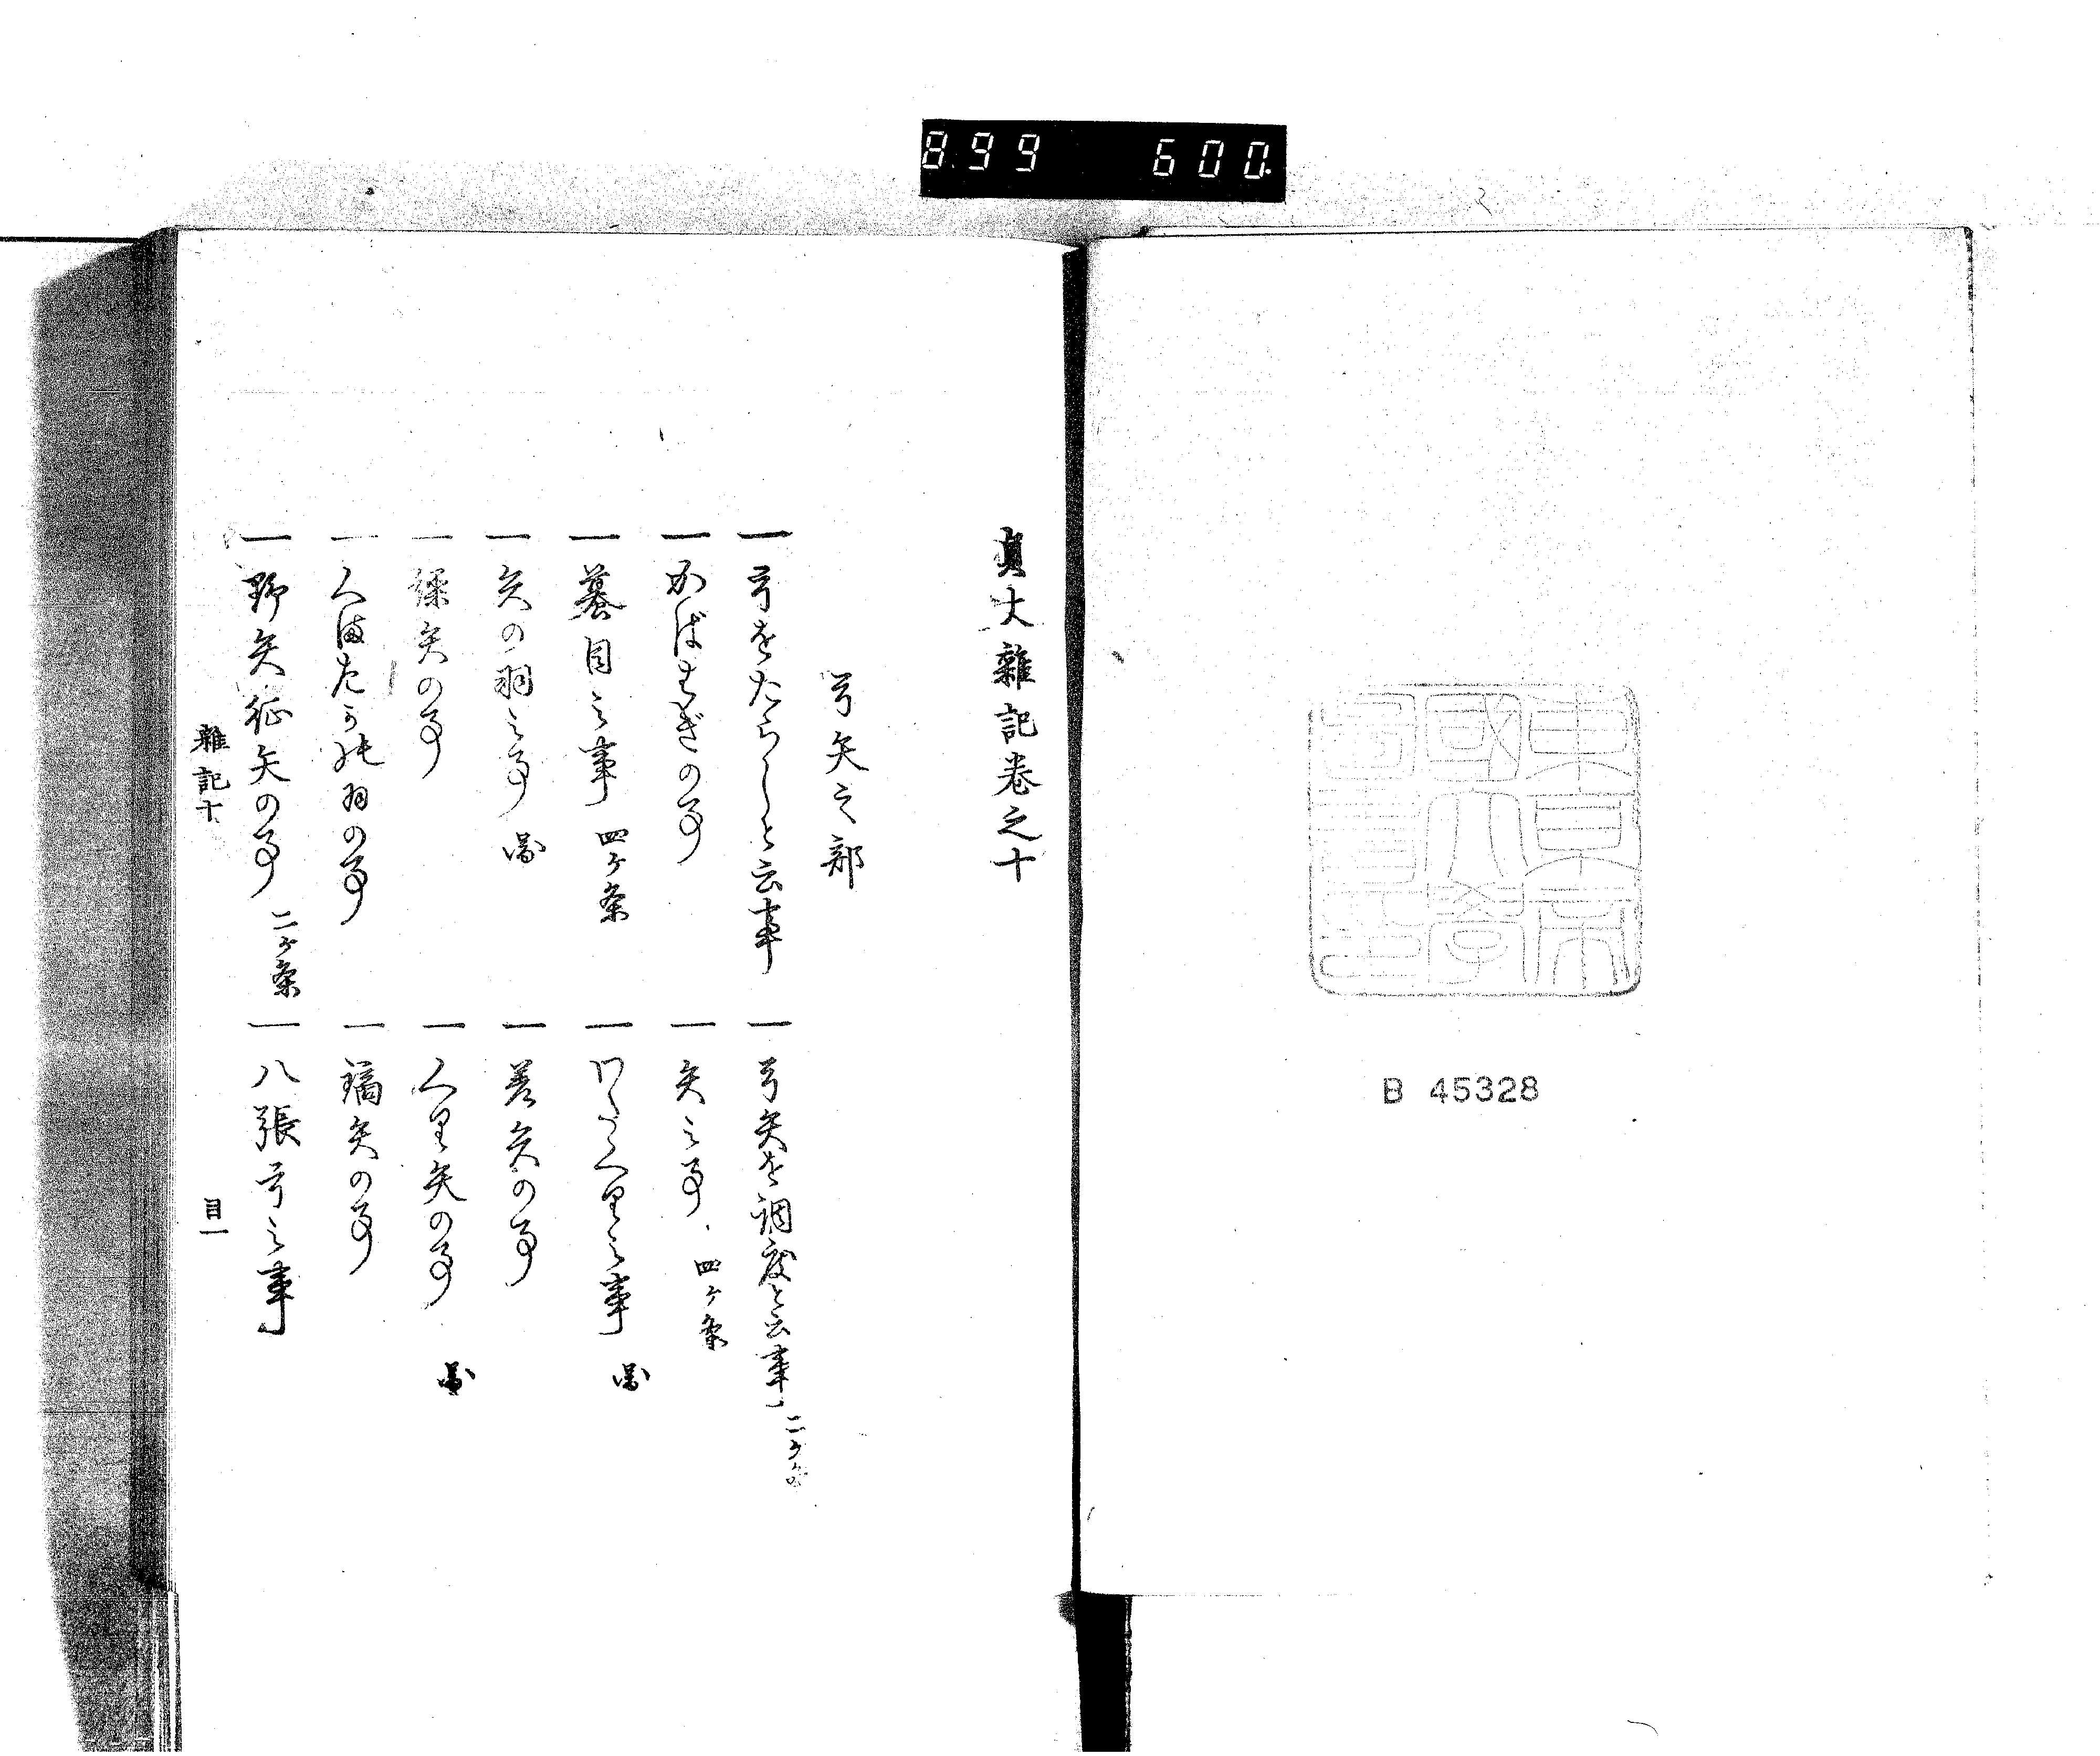 899 600
東京帝
國大學
圖書印
B 45328
貞丈雜記巻之十
弓矢之部
一 弓をたらしと云事
一 弓矢を調度と云事 二ケ条
一 かばはぎの事
一 矢之事 四ケ条
一 蟇目之事 四ケ条
一 わたくり之事 図
一 矢の羽之事 図
一 差矢の事
一 繰矢の事
一 くり矢の事 図
一 くまたかの羽の事
一 鏑矢の事
一 野矢征矢の事 二ケ条
一 八張弓之事
雜記十
目一